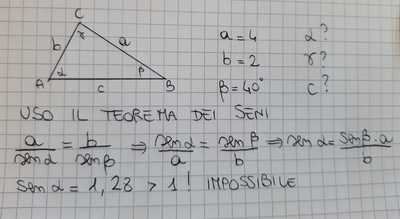 C
γ
b a
α β
A c B
a = 4 α?
b = 2 γ?
β = 40° c?
USO IL TEOREMA DEI SENI
a/sen α = b/sen β ⇒ sen α/a = sen β/b ⇒ sen α = sen β · a/b
sen α = 1,28 > 1! IMPOSSIBILE